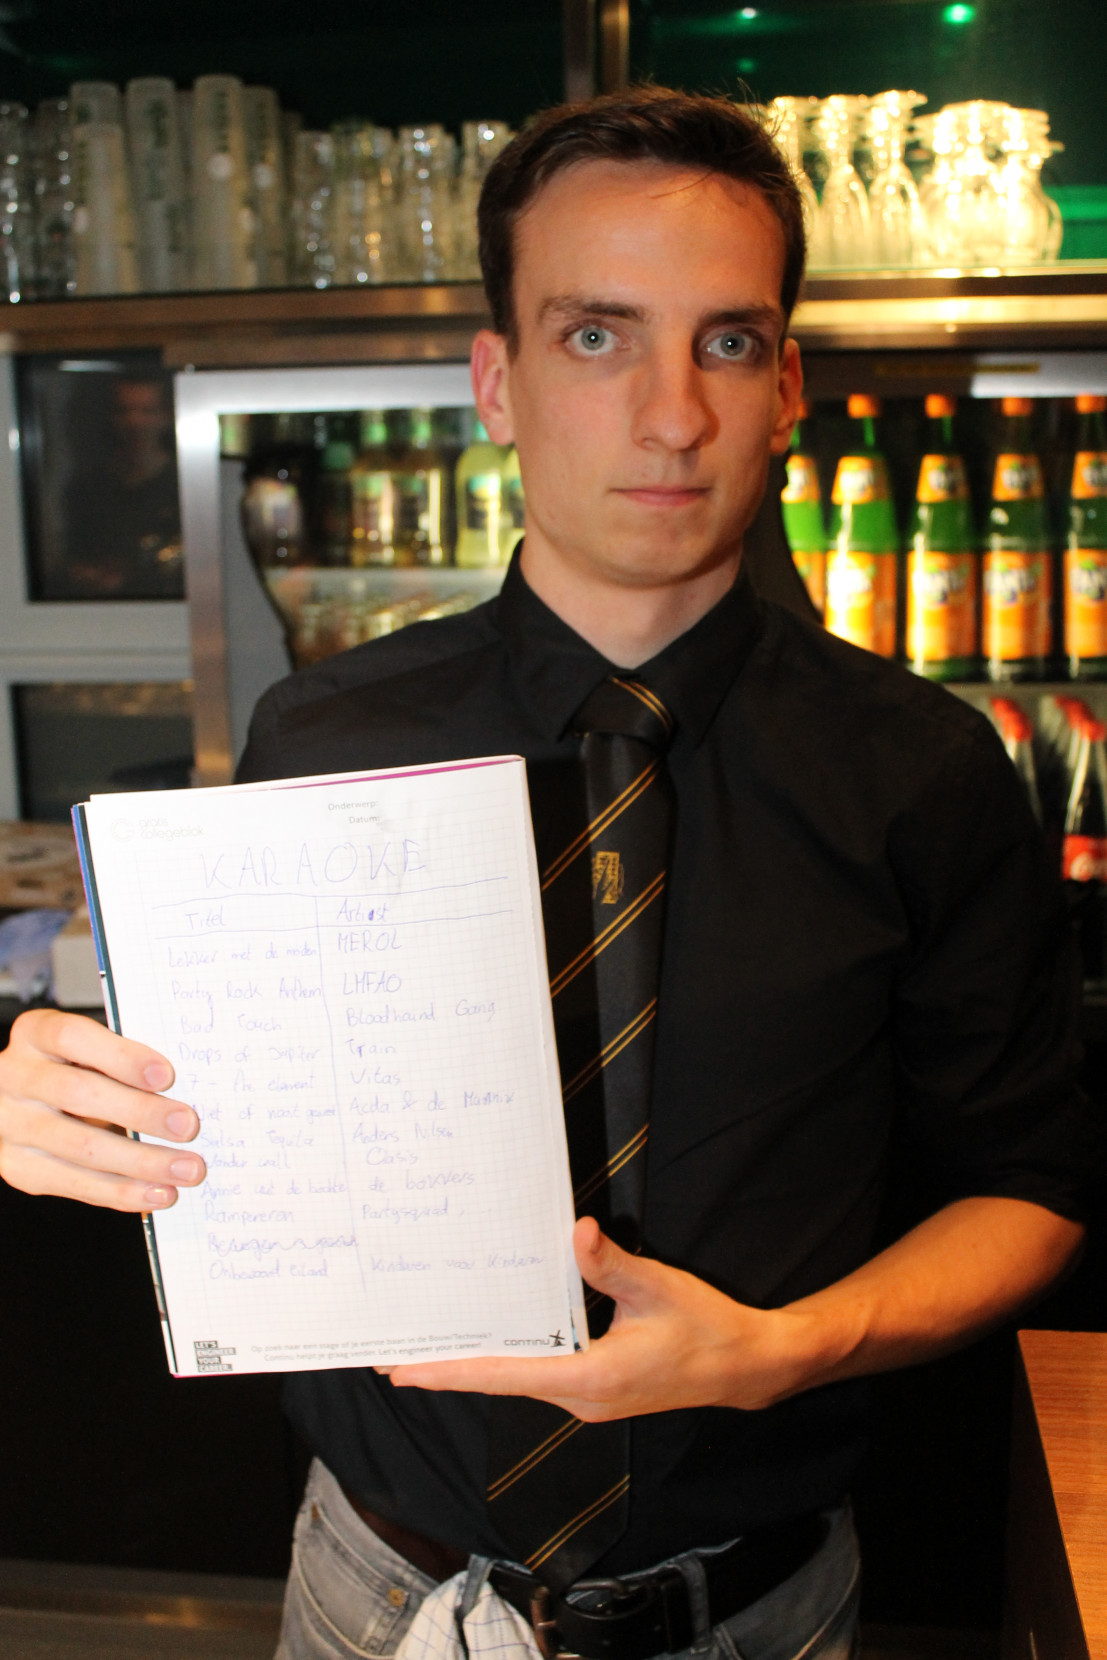 gratis
collegeblok
Onderwerp:
Datum:
KARAOKE
Titel Artiest
Lekker met de meiden MEROL
Party Rock Anthem LMFAO
Bad Touch Bloodhaind Gang
Drops of Jupiter Train
7 - the element Vitas
Niet of nooit geweest Acda & de Munnik
Salsa Tequila Anders Nilsen
Wonder wall Oasis
Annie uit de de bakkers
Ramponeren Partysquad
Onbewoond eiland Kinderen voor kinderen
LET'S
ENGINEER
YOUR
CAREER.
Op zoek naar een stage of je eerste baan in de Bouw/Techniek?
Continu helpt je graag verder. Let's engineer your career!
CONTINU
FANTA
FANTA
FANTA